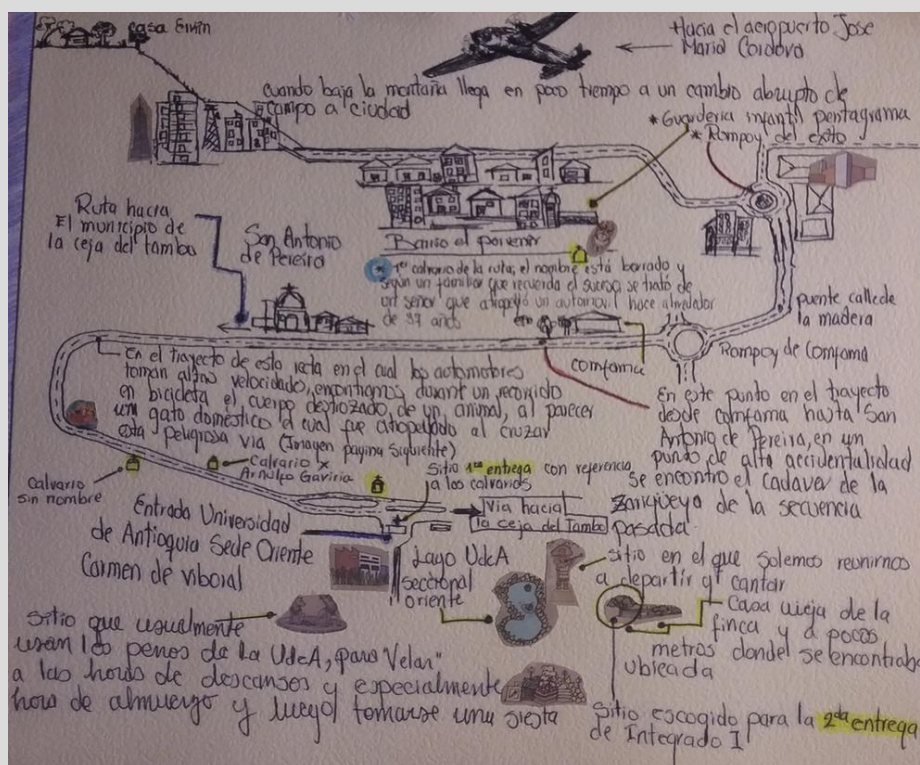 casa Erwin
Hacia el aeropuerto Jose
Maria Cordova
cuando baja la montaña llega en poco tiempo a un cambio abrupto de
campo a ciudad
* Guarderia infantil pentagrama
* Rompoy del exito
Ruta hacia
El municipio de
la ceja del tambo
San Antonio
de Pereira
Barrio el porvenir
* 1er calvario de la ruta, el nombre está borrado y
según un familiar que recuerda el suceso, se trató de
un señor que atropelló un automovil hace alrededor
de 37 años
puente calle de
la madera
comfama
Rompoy de Comfama
En el trayecto de esta recta en el cual los automotores
toman altas velocidades, encontramos durante un recorrido
en bicicleta el cuerpo destrozado, de un animal, al parecer
un gato doméstico el cual fue atropellado al cruzar
esta peligrosa via (Imagen pagina siguiente)
En este punto en el trayecto
desde comfama hasta San
Antonio de Pereira, en un
punto de alta accidentalidad
se encontro el cadaver de la
zarigüeya de la secuencia
pasada.
Calvario
sin nombre
Calvario x
Arnulfo Gaviria
Sitio 1ra entrega con referencia
a los calvarios
Via hacia
la ceja del Tambo
Entrada Universidad
de Antioquia Sede Oriente
Carmen de viboral
Lago UdeA
seccional
oriente
sitio en el que solemos reunirnos
a departir y cantar
Casa vieja de la
finca y a pocos
metros donde se encontraba
ubicada
Sitio que usualmente
usan los perros de la UdeA, para "Velar"
a las horas de descansos y especialmente
hora de almuerzo y luego tomarse una siesta
Sitio escogido para la 2da entrega
de Integrado I